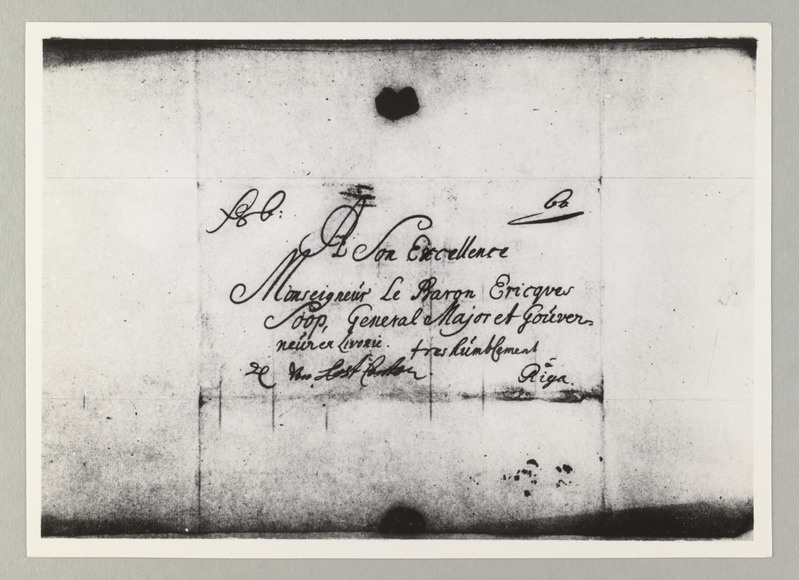 A Son Excellence
Monseigneúr Le Baron Ericqúes
Soop, General Major et Goúver-
neúr en Livonie. tres húmblement
à
Riga.